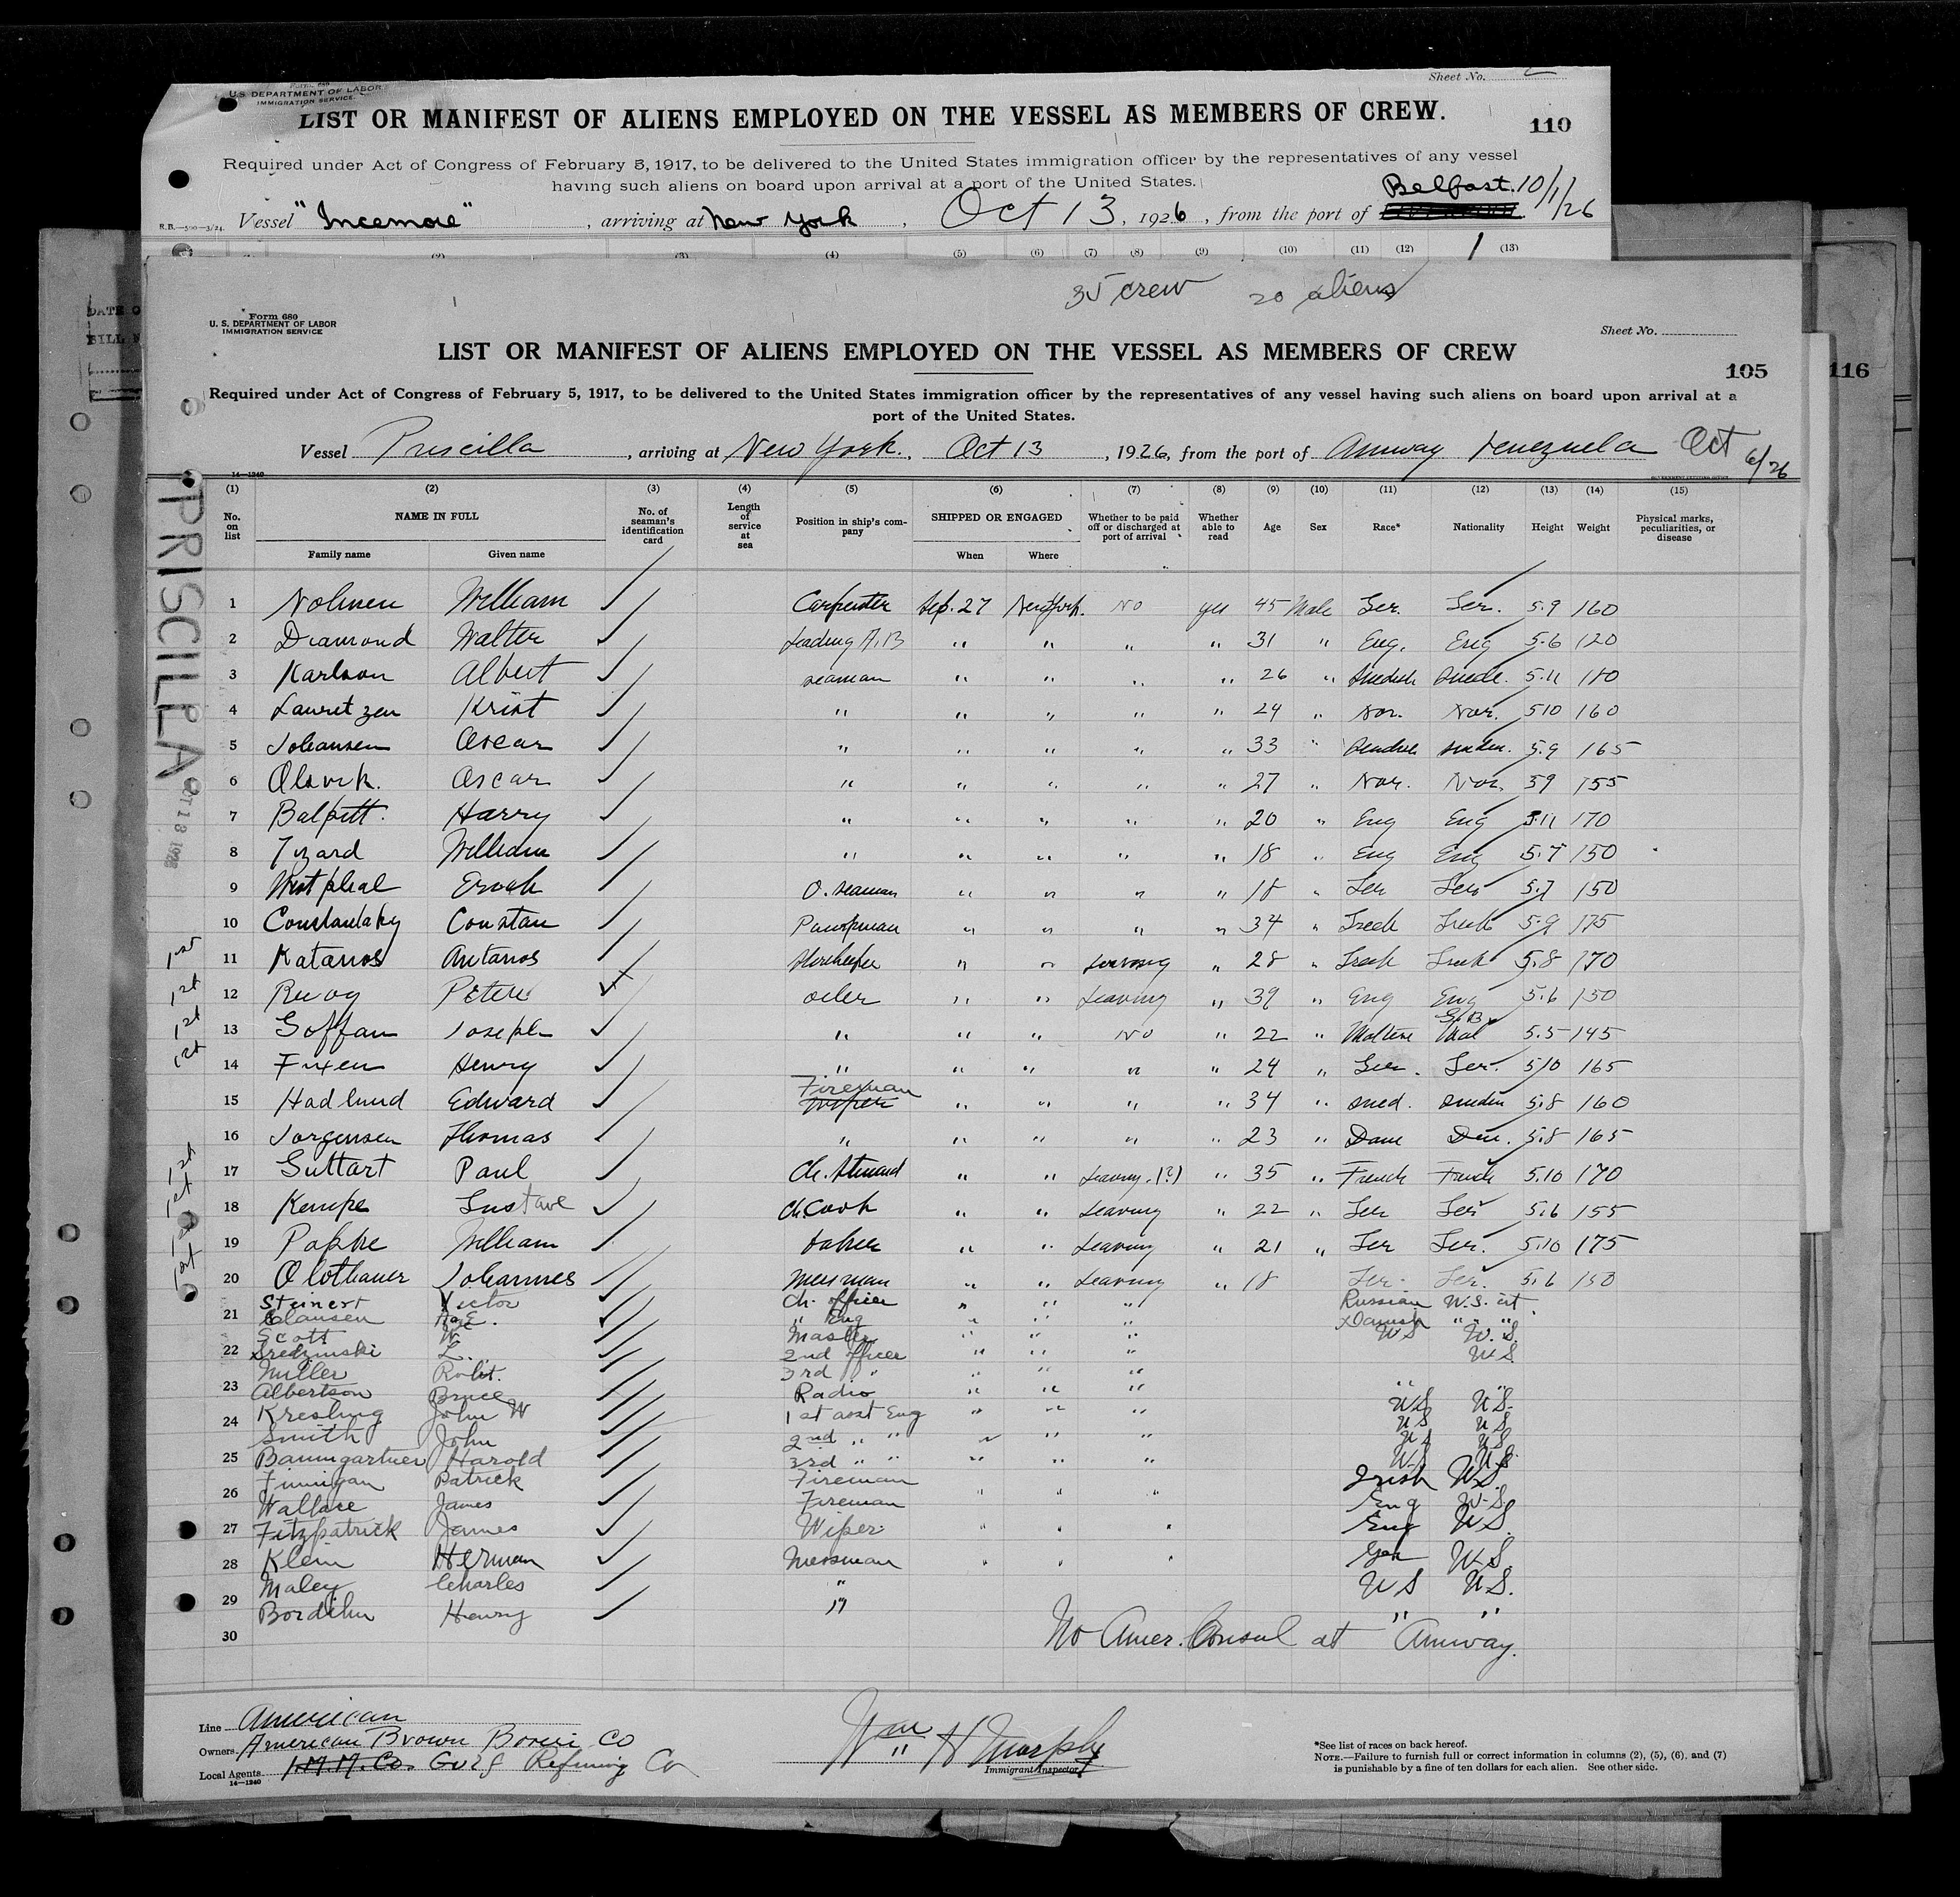 Sheet No. 2
Form 680
U.S. DEPARTMENT OF LABOR
IMMIGRATION SERVICE
LIST OR MANIFEST OF ALIENS EMPLOYED ON THE VESSEL AS MEMBERS OF CREW.
110
Required under Act of Congress of February 5, 1917, to be delivered to the United States immigration officer by the representatives of any vessel
having such aliens on board upon arrival at a port of the United States.
R.B.—500—3/24. Vessel "Incemore", arriving at New York, Oct 13, 1926, from the port of Belfast. 10/1/26
(2) (3) (4) (5) (6) (7) (8) (9) (10) (11) (12) (13)
35 crew 20 aliens
Form 680
U. S. DEPARTMENT OF LABOR
IMMIGRATION SERVICE
Sheet No.
LIST OR MANIFEST OF ALIENS EMPLOYED ON THE VESSEL AS MEMBERS OF CREW
105
116
Required under Act of Congress of February 5, 1917, to be delivered to the United States immigration officer by the representatives of any vessel having such aliens on board upon arrival at a
port of the United States.
Vessel Priscilla, arriving at New York, Oct 13, 1926, from the port of Amway Venezuela Oct 6/26
14—1240
PRISCILLA
(1) (2) (3) (4) (5) (6) (7) (8) (9) (10) (11) (12) (13) (14) (15)
No. on list NAME IN FULL No. of seaman's identification card Length of service at sea Position in ship's company SHIPPED OR ENGAGED Whether to be paid off or discharged at port of arrival Whether able to read Age Sex Race* Nationality Height Weight Physical marks, peculiarities, or disease
Family name Given name When Where
1 Nolmen William Carpenter Sep. 27 New York. No yes 45 Male Ger. Ger. 5.9 160
2 Diamond Walter Leading A.B " " " " 31 " Eng. Eng 5.6 120
3 Karlson Albert seaman " " " " 26 " Swedish Swede. 5.11 180
4 Lauretzen Krist " " " " " 24 " Nor. Nor. 510 160
5 Johansen Oscar " " " " " 33 " 5.9 165
6 Olsvik. Oscar " " " " " 27 " Nor. Nor. 59 155
7 Balpitt. Harry " " " " " 20 " Eng Eng 5.11 170
8 Tizard William " " " " " 18 " Eng Eng 5.7 150
9 Westphal O. seaman " " " " 18 " Ger Ger 5.7 150
10 Constantaky Constan Pumpman " " " " 34 " Greek Greek 5.9 175
11 Katanos Antanos Storekeeper " " Leaving " 28 " Greek Greek 5.8 170
12 Peter oiler " " Leaving " 39 " Eng Eng 5.6 150
13 Goffan Joseph " " " No " 22 " Maltese G.B. Mal 5.5 145
14 Fixen Henry " " " " " 24 " Ger. Ger. 5/10 165
15 Hadlund Edward Fireman " " " " 34 " Swed. Sweden 5.8 160
16 Jorgensen Thomas " " " " " 23 " Dane Den. 5.8 165
17 Guttart Paul Ch. Steward " " Leaving. (?) " 35 " French French 5.10 170
18 Kempe Gustave Ch. Cook " " Leaving " 22 " Ger Ger 5.6 155
19 Papke William baker " " Leaving " 21 " Ger Ger. 5.10 175
20 Olothauer Johannes Messman " " Leaving " 18 Ger. Ger. 5.6 150
Steinert Victor Ch. officer " " " Russian U.S. cit.
21 Clausen Age E. " Eng " " " Danish " " "
Scott W. Master " " " US U.S.
22 Sredzinski L. 2nd officer " " " U.S
Miller Robt. 3rd " " " " "
23 Albertson Bruce Radio " " " US U.S.
24 Kresling John W 1st asst Eng " " " US US
Smith John 2nd " " " " " US US
25 Baumgartner Harold 3rd " " " " " U.S U.S.
Finnigan Patrick Fireman Irish U.S.
26 Wallace James Fireman " " " Eng U.S.
27 Fitzpatrick James Wiper " " " Eng U.S.
28 Klein Herman Messman " " " Ger U.S.
Maley Charles " US U.S.
29 Bordihn Henry " " "
30
No Amer. Consul at "Amway.
Line American
Owners American Brown Boveri Co
Local Agents I.M.M. Co. Gulf Refining Co
14—1240
Wm H Murphy
Immigrant Inspector
*See list of races on back hereof.
NOTE.—Failure to furnish full or correct information in columns (2), (5), (6), and (7)
is punishable by a fine of ten dollars for each alien. See other side.